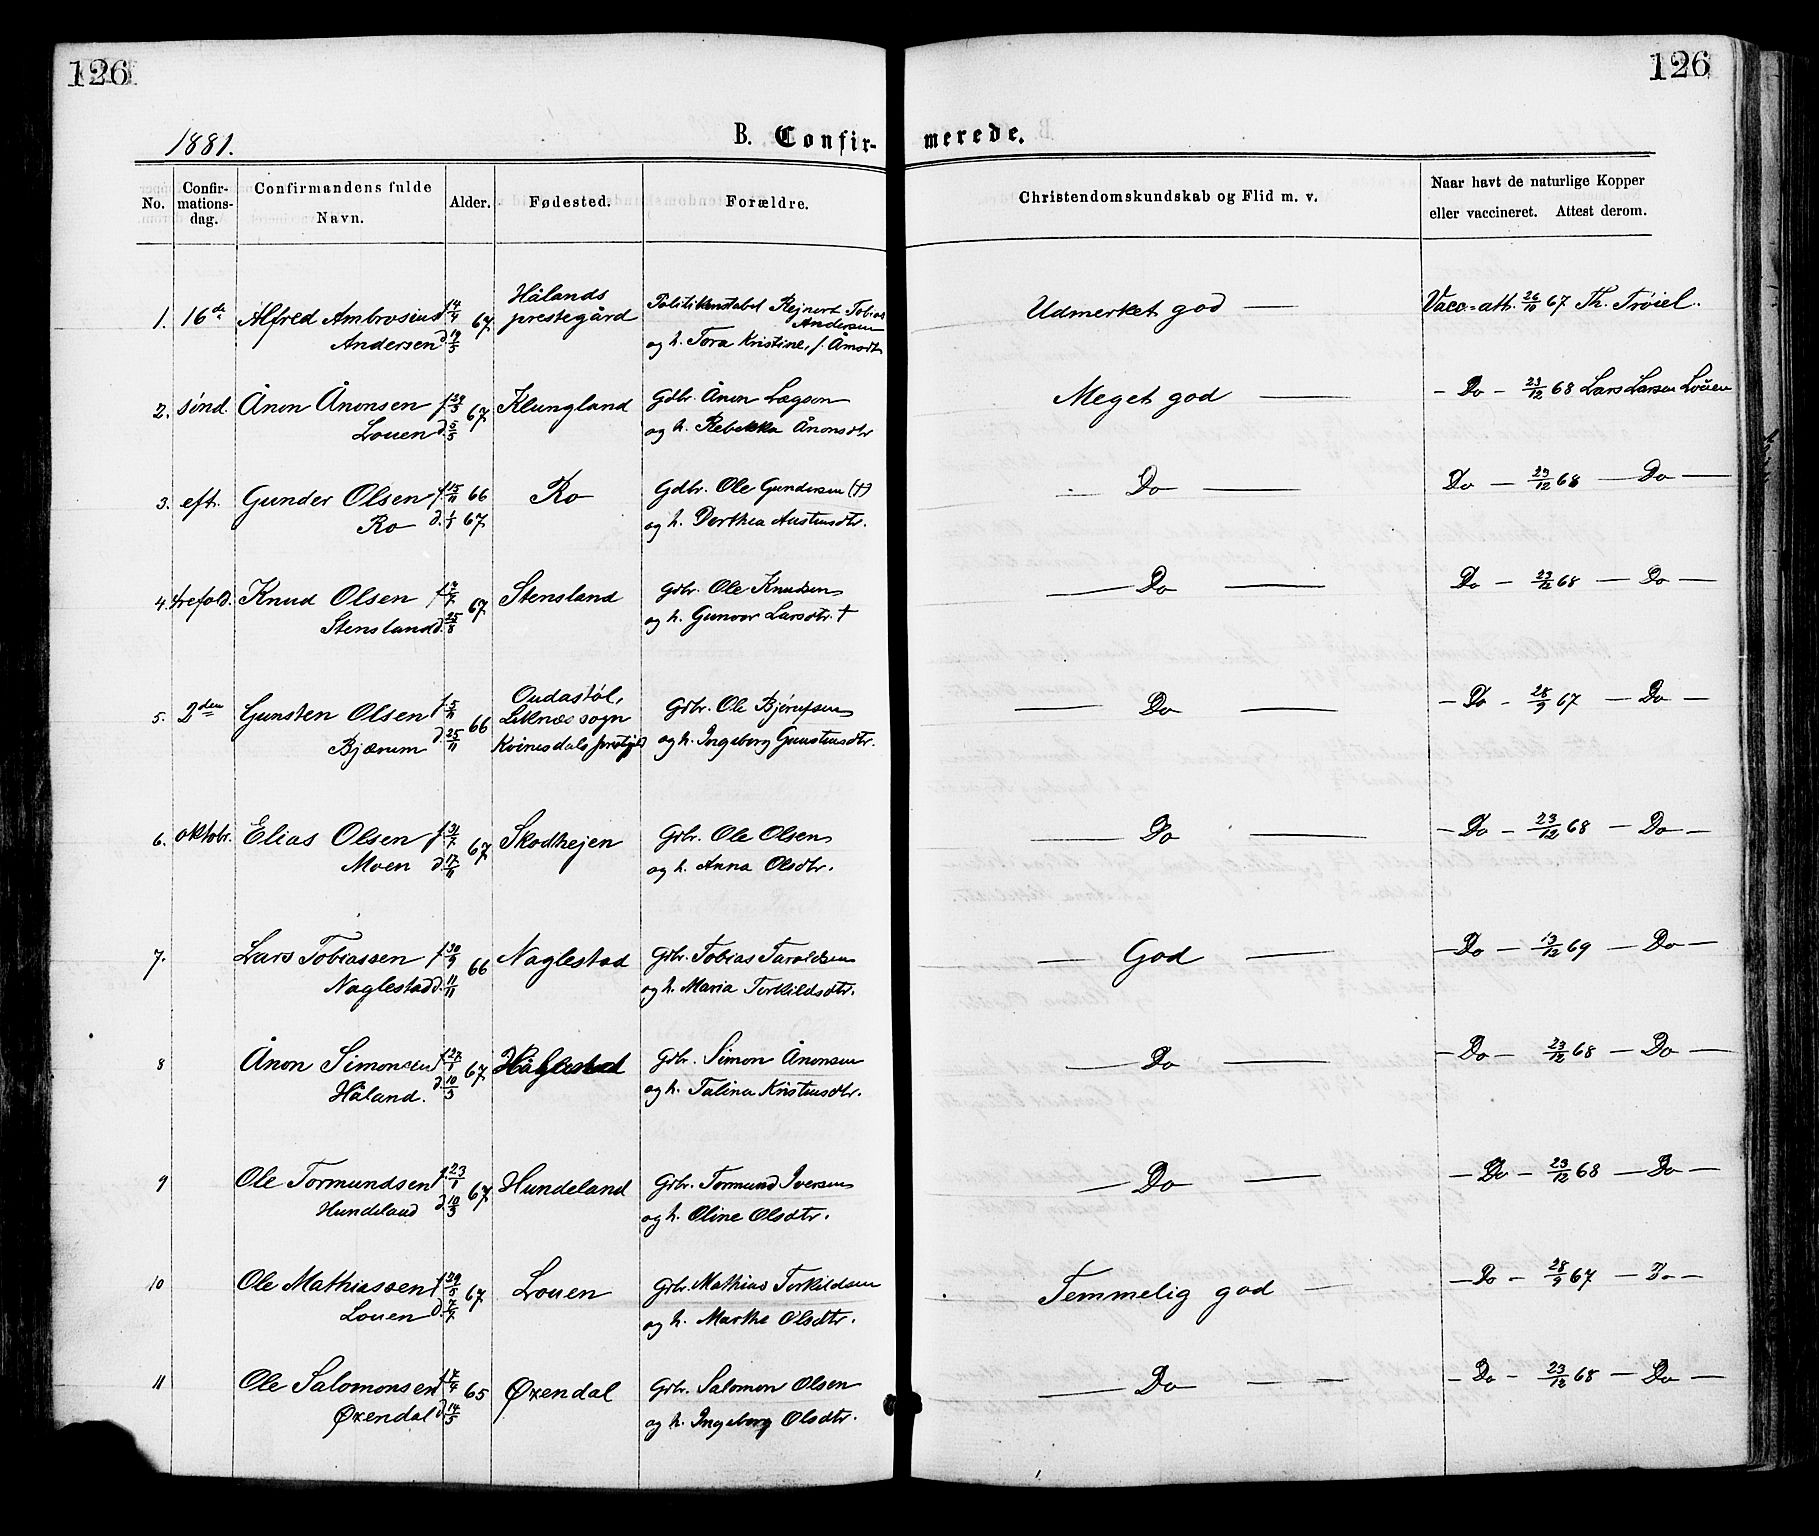 126
126
1881.
B. Confir-
merede.
No.
Confir-
mations-
dag.
Confirmandens fulde
Navn.
Alder.
Fødested.
Forældre.
Christendomskundskab og Flid m. v.
Naar havt de naturlige Kopper
eller vaccineret. Attest derom.
1. 16de Alfred Ambrosius f. 14/4 67 Hålands Politikonstabel Rejnert Tobias Udmerket god — Vacc.-att. 26/10 67 Th. Trøiel.
Andersen d. 19/5 prestegård Andersen
og h. Tora Kristine, f. Åmodt
2. sønd. Ånon Ånonsen f. 67 Klungland Gdbr. Ånon Lagson Meget god — - Do - 23/12 68 Lars Larsen Louen
Louen d. 5/5 og h. Rebekka Ånonsdtr
3. eft. Gunder Olsen f. 15/11 66 Ro Gdbr. Ole Gundersen (†) — Do — Do - 23/12 68 — Do —
Ro d. 1/1 67 og h. Dorthea Austensdtr.
4. trefold. Knud Olsen f. 7/7 67 Stensland Gdbr. Ole Knudsen — Do — Do - 23/12 68 — Do —
Stensland d. 25/8 og h. Gunvor Larsdtr. †
5. 2den Gunsten Olsen f. 5/11 66 Oudastøl, Gdbr. Ole — Do — - Do - 28/9 67 — Do —
Bjærum d. 25/11 Liknes sogn og h. Ingeborg Gunstensdtr.
Kvinesdals prestgjd
6. oktobr. Elias Olsen f. 31/7 67 Skodhejen Gdbr. Ole Olsen — Do — - Do - 23/12 68 — Do —
Moen d. 17/11 og h. Anna Olsdtr.
7. Lars Tobiassen f. 30/9 66 Naglestad Gdbr. Tobias Taraldsen — God — - Do - 13/12 69 — Do —
Naglestad d. 11/11 og h. Maria Terkildsdtr.
8 Ånon Simonsen f. 27/1 67 Gdbr. Simon Ånonsen — Do — - Do - 23/12 68 — Do —
Håland. d. 10/3 og h. Talina Kristensdtr.
9 Ole Tormundsen f. 23/1 67 Hundeland Gdbr. Tormund Iversen — Do — - Do - 23/12 68 — Do —
Hundeland d. 10/3 og h. Oline Olsdtr.
10 Ole Mathiassen f. 29/5 67 Louen Gdbr. Mathias Terkildsen Temmelig god — - Do - 28/9 67 — Do —
Louen d. 7/7 og h. Marthe Olsdtr.
11 Ole Salomonsen f. 7/4 65 Øxendal Gdbr. Salomon Olsen — Do — - Do - 23/12 68 — Do —
Øxendal d. 14/5 og h. Ingeborg Olsdtr.